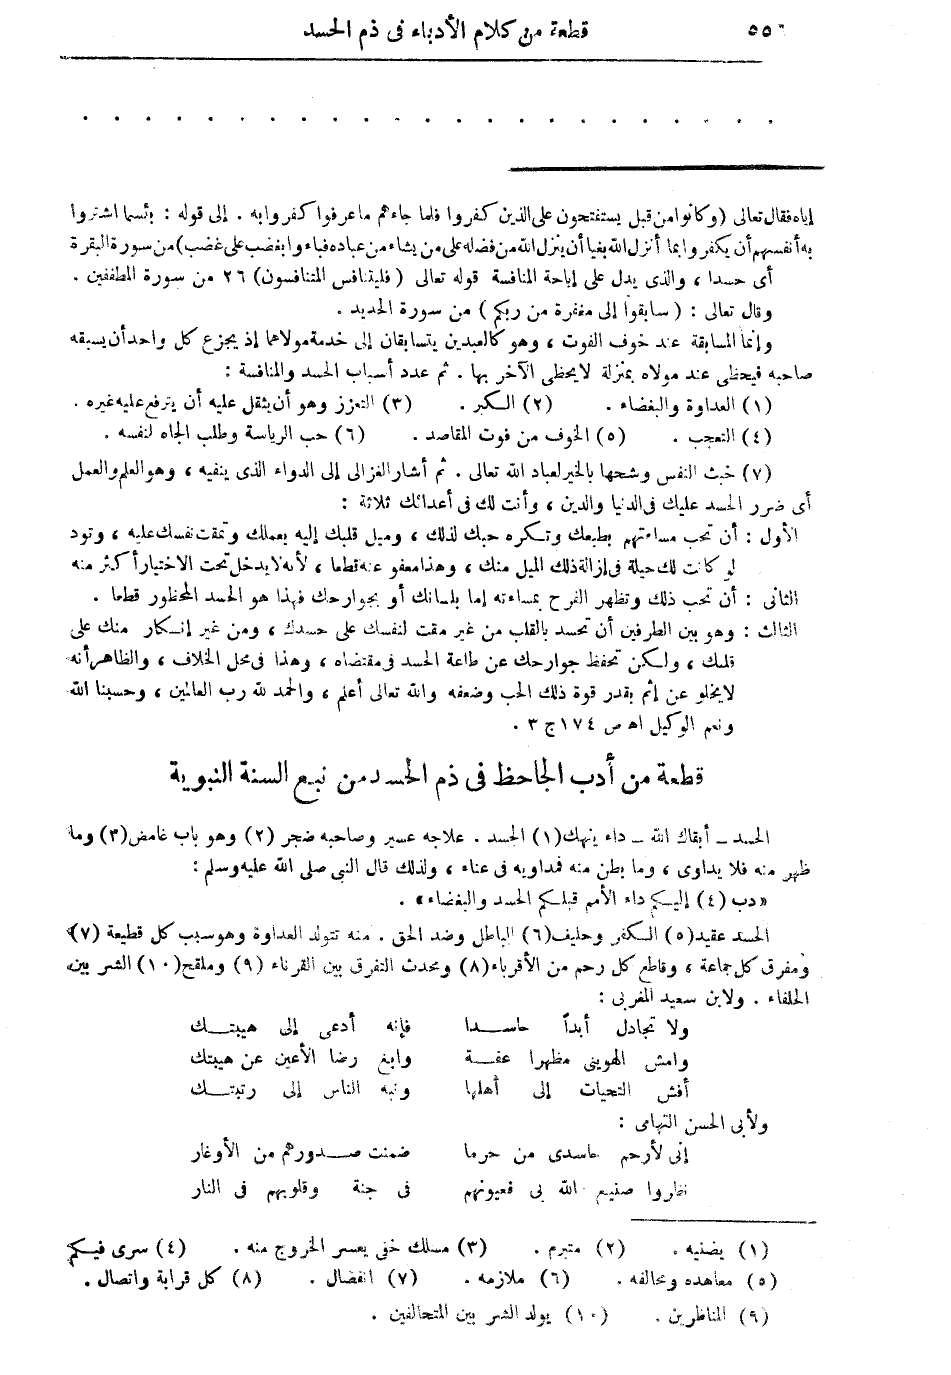 ٥٥٠ قطعة من كلام الأدباء فى ذم الحسد
إياه فقال تعالى (وكانوا من قبل يستفتحون على الذين كفروا فلما جاءهم ما عرفوا كفروا به . إلى قوله : بئسما اشتروا
به أنفسهم أن يكفروا بما أنزل الله بغيا أن ينزل الله من فضله على من يشاء من عباده فباءوا بغضب على غضب) من سورة البقرة
أى حسدا ، والذى يدل على إباحة المنافسة قوله تعالى (فليتنافس المتنافسون) ٢٦ من سورة المطففين .
وقال تعالى : (سابقوا إلى مغفرة من ربكم) من سورة الحديد .
وإنما المسابقة عند خوف الفوت ، وهو كالعبدين يتسابقان إلى خدمة مولاهما إذ يجزع كل واحد أن يسبقه
صاحبه فيحظى عند مولاه بمنزلة لا يحظى الآخر بها . ثم عدد أسباب الحسد والمنافسة :
(١) العداوة والبغضاء . (٢) الكبر . (٣) التعزز وهو أن يثقل عليه أن يترفع عليه غيره .
(٤) التعجب . (٥) الخوف من فوت المقاصد . (٦) حب الرياسة وطلب الجاه لنفسه .
(٧) خبث النفس وشحها بالخير لعباد الله تعالى . ثم أشار الغزالى إلى الدواء الذى ينفيه ، وهو العلم والعمل
أى ضرر الحسد عليك فى الدنيا والدين ، وأنت لك فى أعدائك ثلاثة :
الأول : أن تحب مساءتهم بطبعك وتكره حبك لذلك ، وميل قلبك إليه بعملك وتمقت نفسك عليه ، وتود
لو كانت لك حيلة فى إزالة ذلك الميل منك ، وهذا معفو عنه قطعا ، لأنه لا يدخل تحت الاختيار أكثر منه
الثانى : أن تحب ذلك وتظهر الفرح بمساءته إما بلسانك أو بجوارحك فهذا هو الحسد المحظور قطعا .
الثالث : وهو بين الطرفين أن تحسد بالقلب من غير مقت لنفسك على حسدك ، ومن غير إنكار منك على
قلبك ، ولكن تحفظ جوارحك عن طاعة الحسد فى مقتضاه ، وهذا فى محل الخلاف ، والظاهر أنه
لا يخلو عن إثم بقدر قوة ذلك الحب وضعفه والله تعالى أعلم ، والحمد لله رب العالمين ، وحسبنا الله
ونعم الوكيل اه ص ١٧٤ ج ٣ .
قطعة من أدب الجاحظ فى ذم الحسد من نبع السنة النبوية
الحسد ــ أبقاك الله ــ داء ينهك (١) الجسد . علاجه عسير وصاحبه ضجر (٢) وهو باب غامض (٣) وما
ظهر منه فلا يداوى ، وما بطن منه فمداويه فى عناء ، ولذلك قال النبى صلى الله عليه وسلم :
«دب (٤) إليكم داء الأمم قبلكم الحسد والبغضاء» .
الحسد عقيد (٥) الكفر وحليف (٦) الباطل وضد الحق . منه تتولد العداوة وهو سبب كل قطيعة (٧)
ومفرق كل جماعة ، وقاطع كل رحم من الأقرباء (٨) ومحدث التفرق بين القرناء (٩) وملقح (١٠) الشر بين
الحلفاء . ولابن سعيد المغربى :
ولا تجادل أبداً حاسدا فإنه أدعى إلى هيبتك
وامش الهوينى مظهرا عفة وابغ رضا الأعين عن هيبتك
أفش التحيات إلى أهلها ونبه الناس إلى رتبتك
ولأبى الحسن التهامى :
إنى لأرحم حاسدى من حرما ضمنت صدورهم من الأوغار
نظروا صنيع الله بى فعيونهم فى جنة وقلوبهم فى النار
(١) يضنيه . (٢) متبرم . (٣) مسلك خفى يعسر الخروج منه . (٤) سرى فيكم
(٥) معاهده ومحالفه . (٦) ملازمه . (٧) انفصال . (٨) كل قرابة واتصال .
(٩) المناظرين . (١٠) يولد الشر بين المتحالفين .